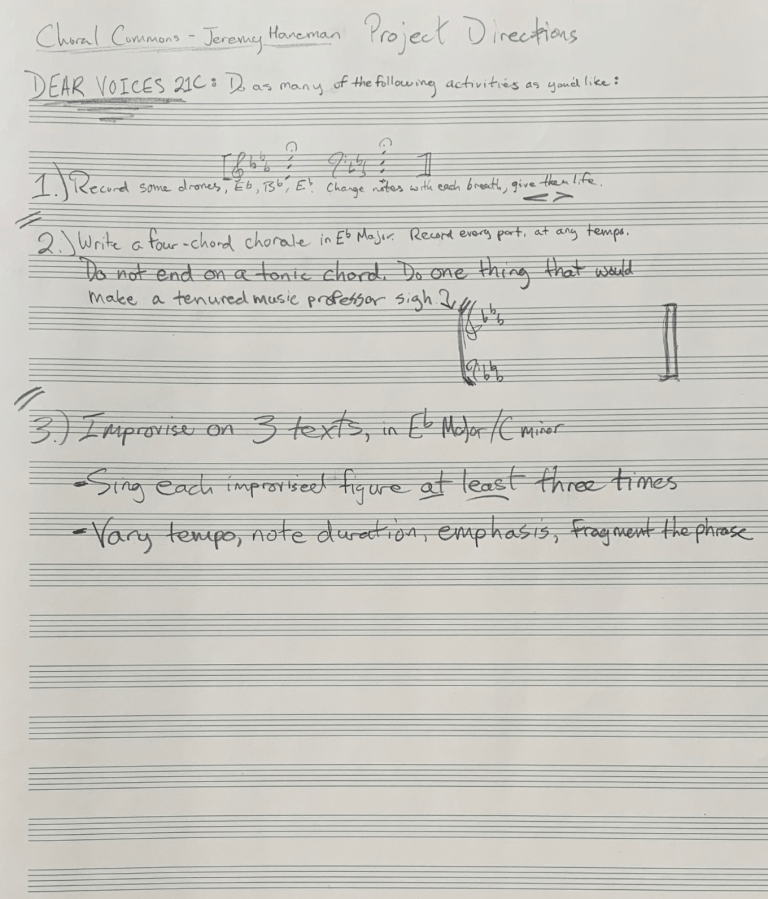 Choral Commons - Jeremy Haneman Project Directions
DEAR VOICES 21C: Do as many of the following activities as you'd like:
1.) Record some drones, Eb, Bb, Eb. Change notes with each breath, give them life.
2.) Write a four-chord chorale in Eb Major. Record every part, at any tempo.
Do not end on a tonic chord. Do one thing that would
make a tenured music professor sigh.
3.) Improvise on 3 texts, in Eb Major/C minor
- Sing each improvised figure at least three times
- Vary tempo, note duration, emphasis, fragment the phrase